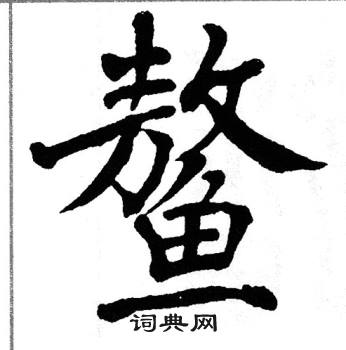 鳌
词典网